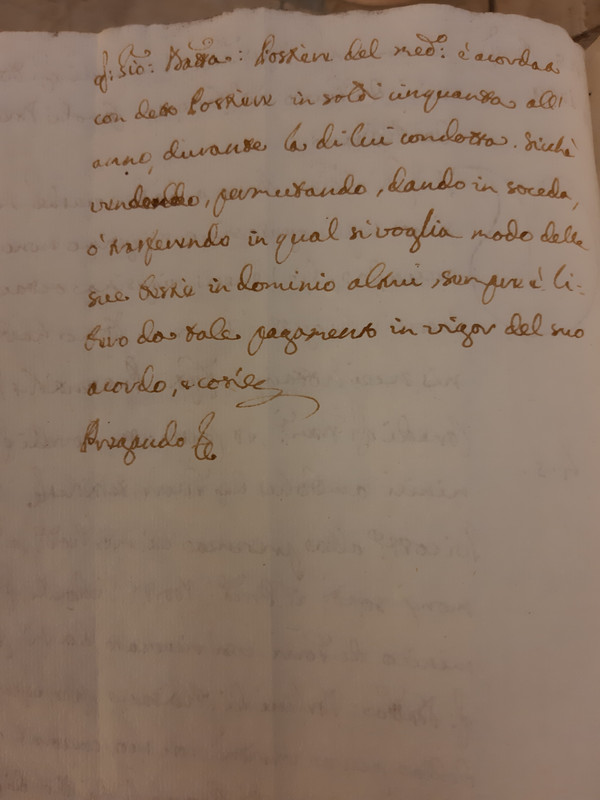 q: Gio: Batta: Postiere del med:º è acordato
con detto Postiere in soldi cinquanta all'
anno, durante la di lui condotta. Sichè
vendendo, permutando, dando in soceda,
ò trasferendo in qual si voglia modo delle
sue bestie in dominio altrui, sempre è li-
bero da tale pagamento in vigor del suo
acordo, e così è
Pregando